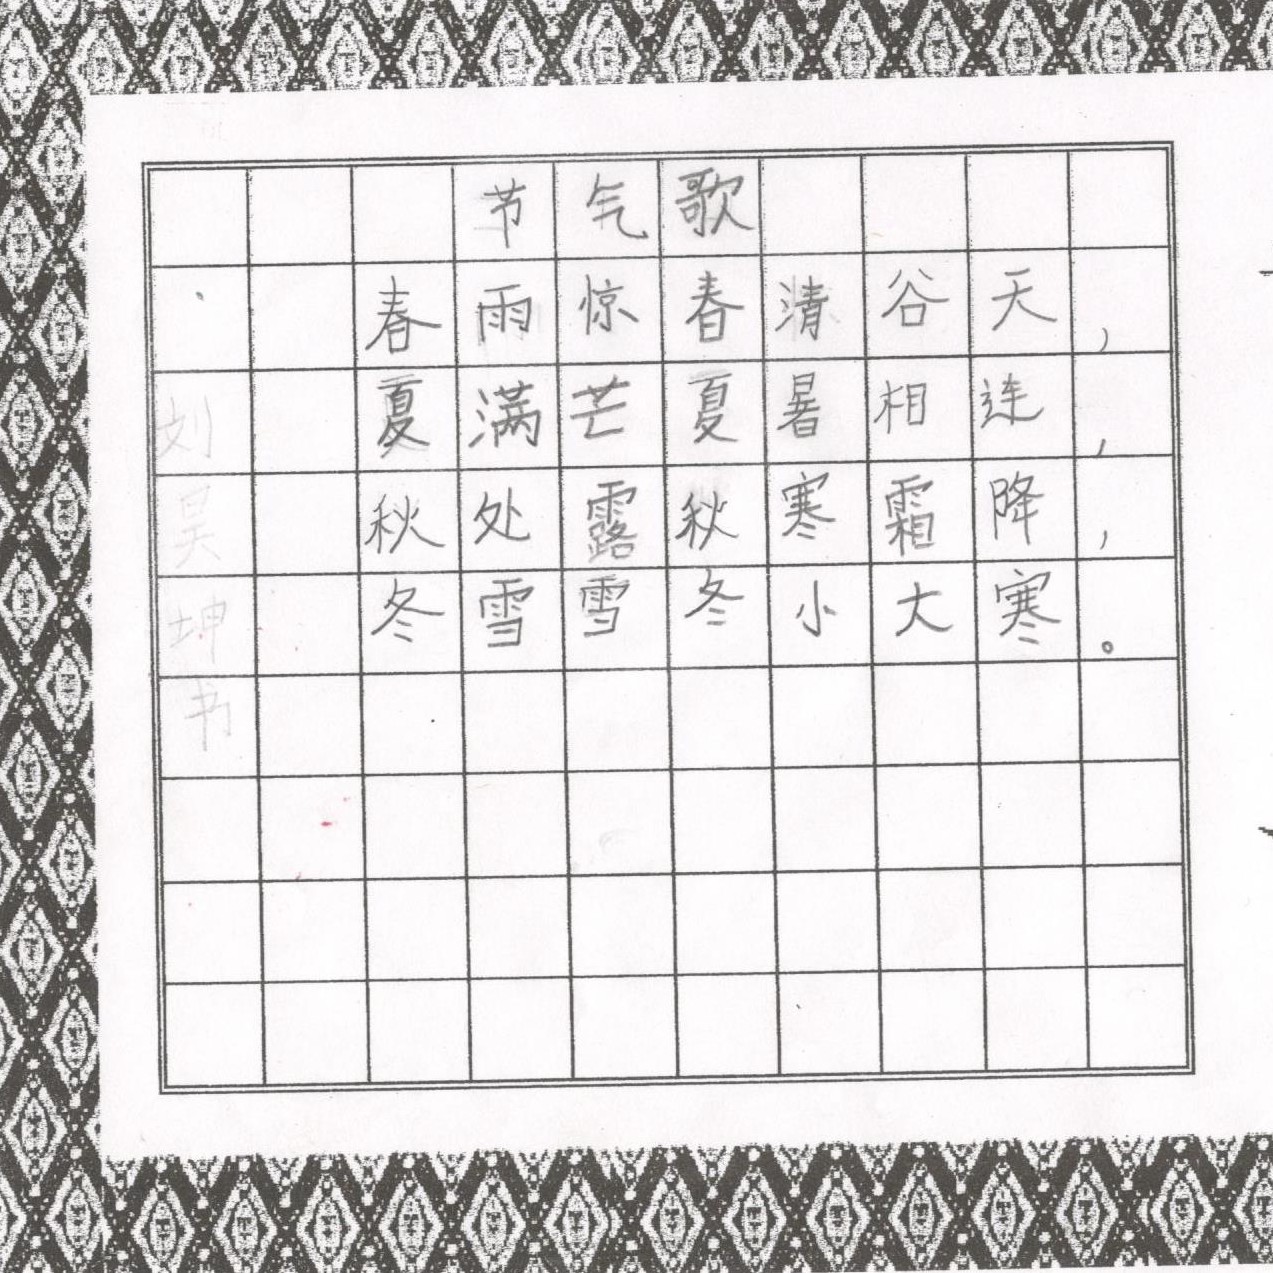 节气歌
春雨惊春清谷天,
夏满芒夏暑相连,
秋处露秋寒霜降,
冬雪雪冬小大寒。
刘昊坤书